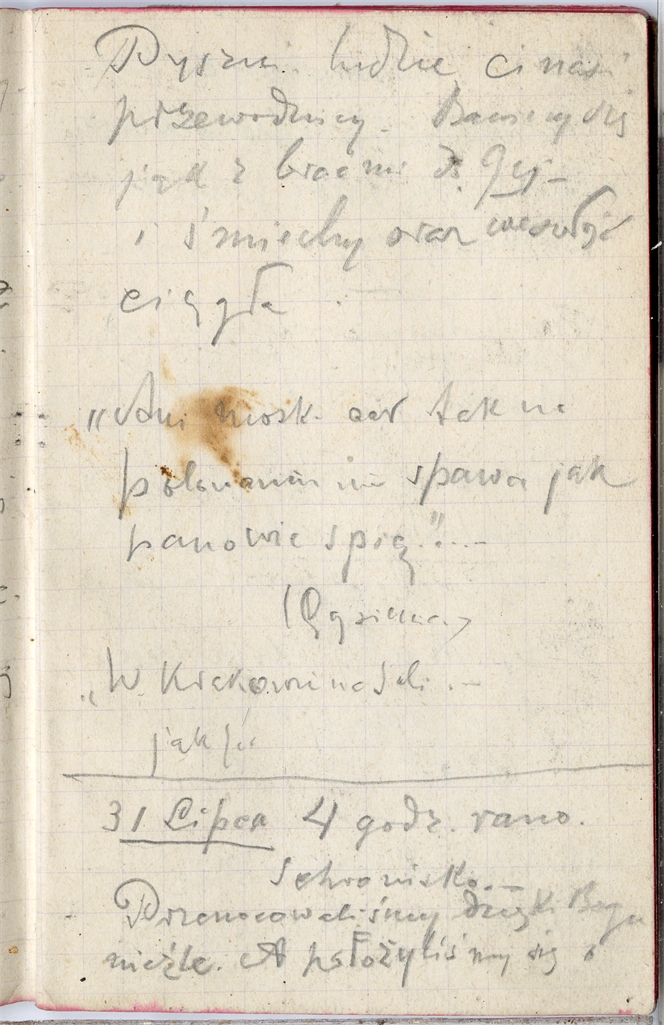 Pyszni ludzie ci nasi
przewodnicy. Bawimy się
jak z braćmi
i śmiechy oraz wesołość
ciągła
"Ani mosk. car tak na
polowaniu nie spawa jak
panowie śpią."...
(Gąsienica)
"W Krakowi na Sali...
jak
31 Lipca 4 godz. rano.
Schronisko.—
Przenocowaliśmy dzięki Bogu
nieźle. A położyliśmy się o